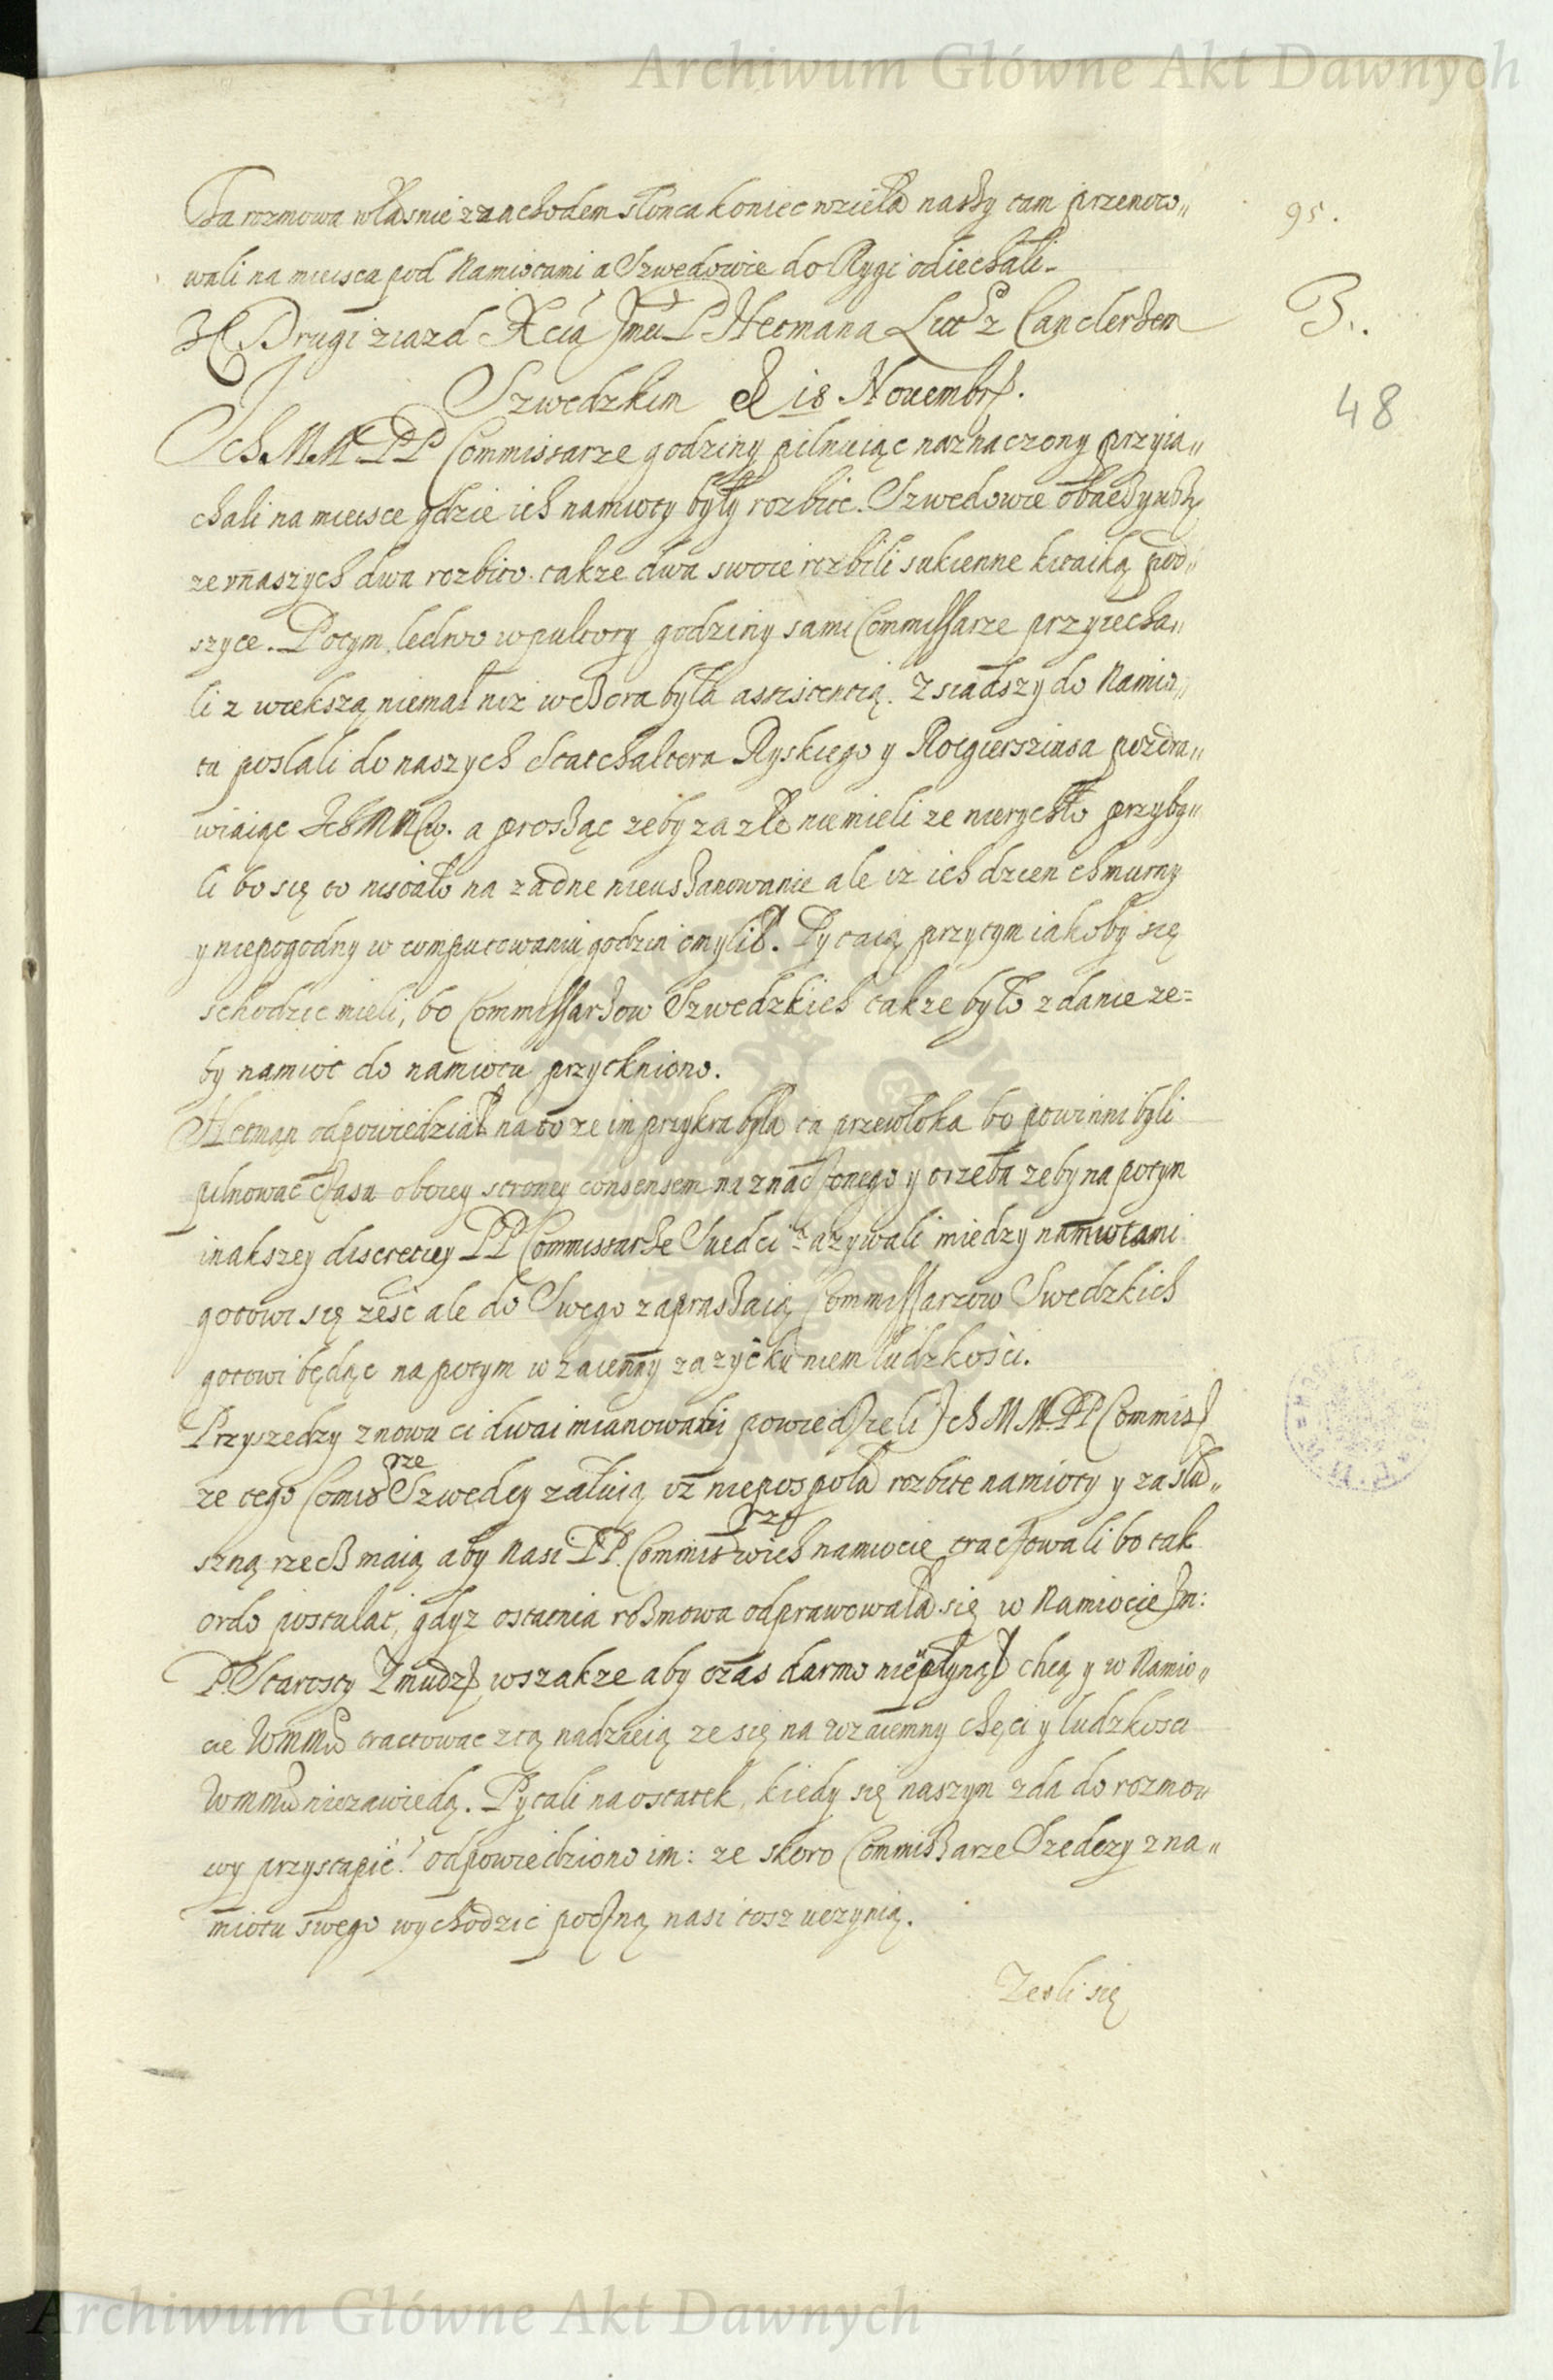 Archiwum Główne Akt Dawnych
Ta rozmowa własnie z zachodem słonca koniec wzieła naszy tam przenoco„
wali na mieisca pod Namiotami a Szwedowie do Rygi odiechali.
95.
Drugi ziazd Xcia Jmci P Hetmana Litt z Canclerzem
B.
Szwedzkim d 18 Nouembr.
48
Ich M.M. PP Commissarze godziny pilnuiąc naznaczony przyia„
chali na mieisce gdzie ich namioty były rozbite. Szwedowie obaczywszy
ze v naszych dwa rozbito. takze dwa swoie rozbili sukienne kitaiką pod„
szyte. Potym ledwo w pultory godziny sami Commissarze przyiecha„
li z wiekszą niemal niz wczora była assistentią. Zsiadszy do Namio„
tu poslali do naszych Statchaltera Ryskiego y Rotgiersziusa pozdra„
wiaiąc IchMMw. a prosząc zeby za złe nie mieli ze nierychło przyby„
li bo się to nistało na zadne nieuszanowanie ale iz ich dzien chmurny
y niepogodny w computowaniu godzin omylił. Pytaią przytym iakoby się
schodzic mieli, bo Commissarzow Szwedzkich takze było zdanie ze=
by namiot do namiotu przytkniono.
Hetman odpowiedział na to ze im przykra była ta przewłoka bo powinni byli
pilnowac czasu oboiey stroney consensem naznaczonego y trzeba zeby na potym
inakszey discretiey PP Commissarze Suedci zazywali miedzy namiotami
gotowi się zesc ale do Swego zapraszaią Commissarzow Swedzkich
gotowi będąc na potym wzaiemny zazyc ku niem ludzkości.
Przyszedzy znowu ci dwai mianowani powiedzieli Ich M M. PP Commiss
ze tego Comisrze Szwedcy załuią iz niepospołu rozbite namioty y za słu„
szną rzecz maią aby Nasi PP. Commissrze w ich namiocie tractowali bo tak
ordo postulat, gdyz ostatnia rozmowa odprawowała się w Namiocie Jm:
P. Starosty Zmudz wszakze aby czas darmo niepłynął chcą y w Namio„
cie WMMw tractowac z tą nadzieią ze się na wzaiemny chęci y ludzkosci
WMMw niezawiedą. Pytali na ostatek, kiedy się naszym zda do rozmo„
wy przystąpić? odpowiedziono im: ze skoro Commiszarze Szedczy z na„
miotu swego wychodzić poczną nasi tosz uczynią.
Zesli się
Archiwum Główne Akt Dawnych